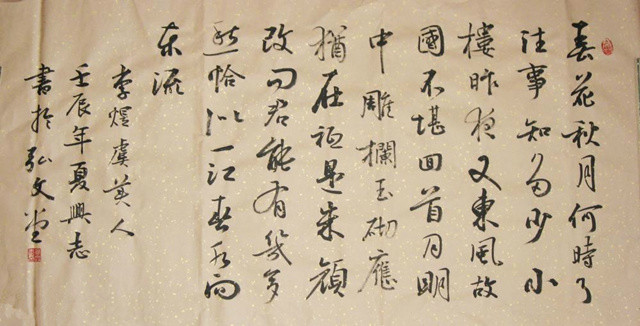 春花秋月何時了
往事知多少小
樓昨夜又東風故
國不堪回首月明
中雕欄玉砌應
猶在祗是朱顔
改问君能有幾多
愁恰似一江春水向
东流
李煜虞美人
壬辰年夏興志
書於弘文堂